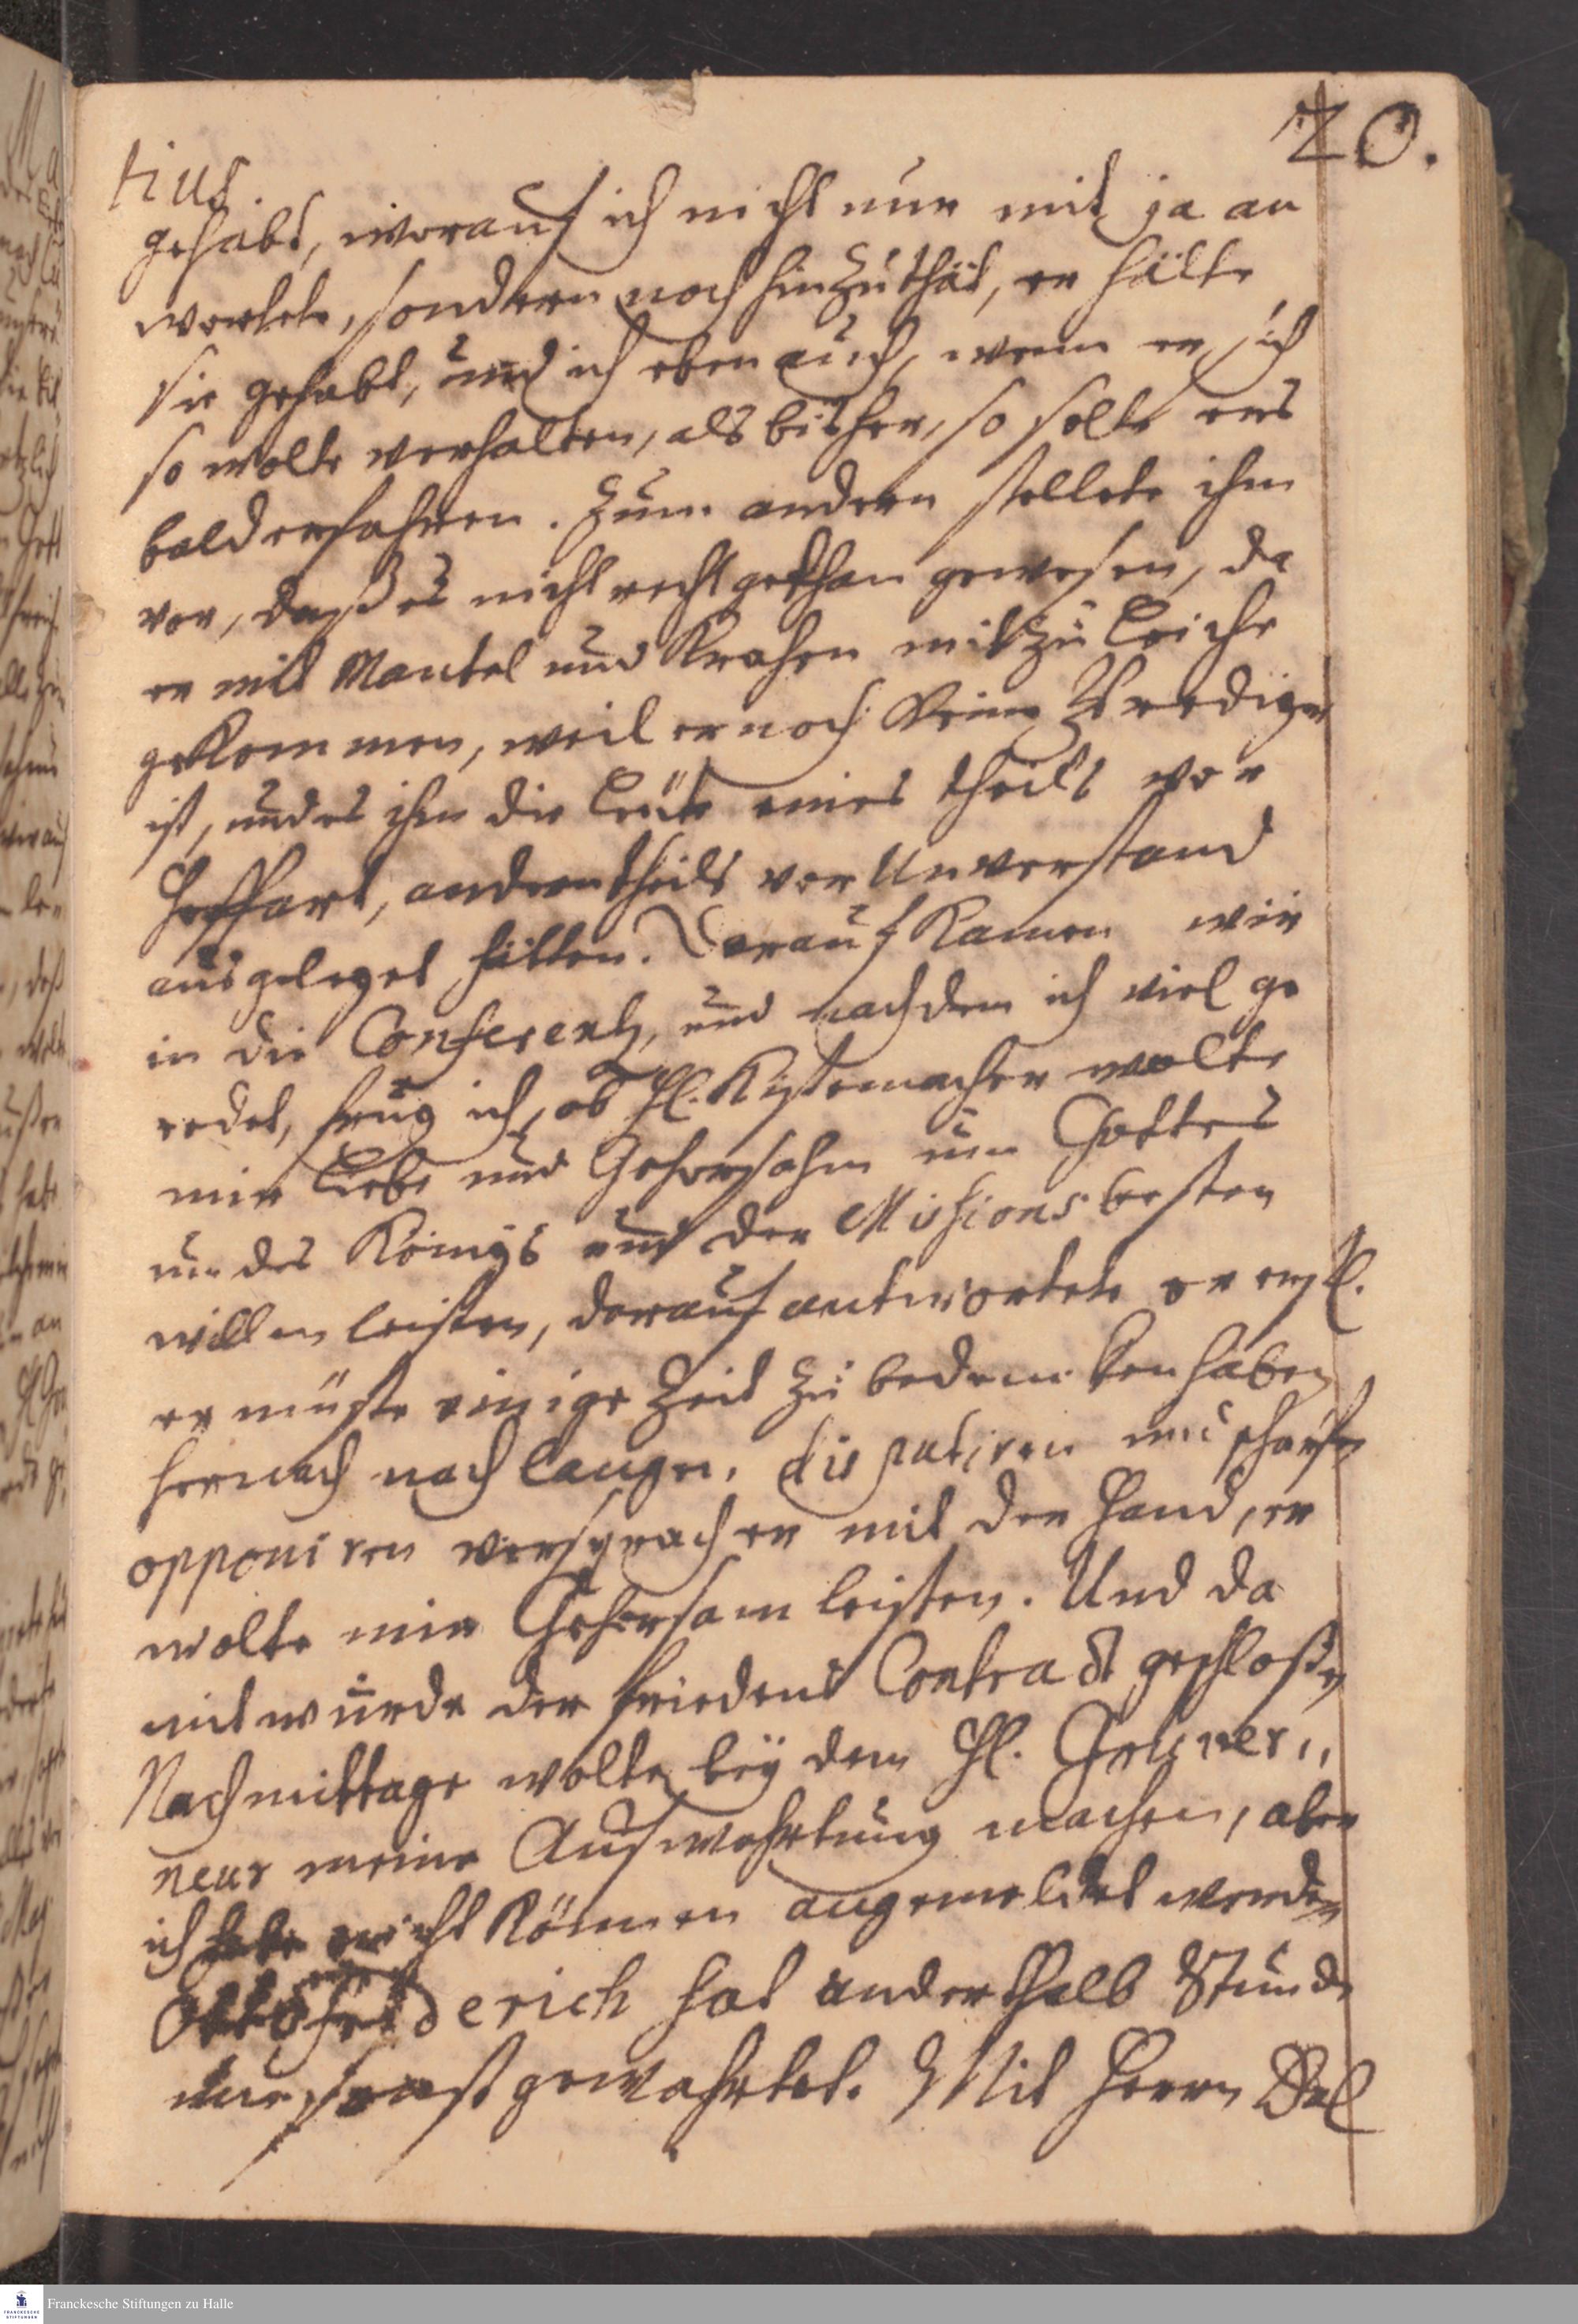 20.
tius.
gehabt, worauf ich nicht nur mit ja an
wortete, sondern noch hinzuthät, er hätte
sie gehabt, und ich eben auch, wenn er sich
so wolte verhalten, als bißher, so solte ers
bald erfahren. Zum andern stellete ihm
vor, daß es nicht recht gethan gewesen, da
er mit Mantel und Krahen mit zu Leiche
gekommen, weil er noch kein Prediger
ist, und es ihm die Leüte eines theils vor
Hoffart, andern theils vor Unverstand
ausgeleget hätten. Darauf kamen wir
in die Conferentz, und nachdem ich viel ge
redet, frug ich, ob H. Kistemacher wolte
mir Liebe und Gehorsahm um Gottes
um des Königs und der Missions besten
willen leisten, darauf antwortete er erstl.
er müste einige Zeit zu bedencken haben
hernach nach langen disputiren und scharfen
opponiren versprach er mit der Hand, er
wolte mir Gehorsam leisten. Und da
mit wurde der friedens Contract geschloßen
Nachmittage wolte beÿ dem H. Gouver
neur meine Aufwahrtung machen, aber
ich nicht können angemeldet werden
derich hat anderthalb Stunde
umsonst gewahrtet. Mit Herrn Dal
Franckesche Stiftungen zu Halle